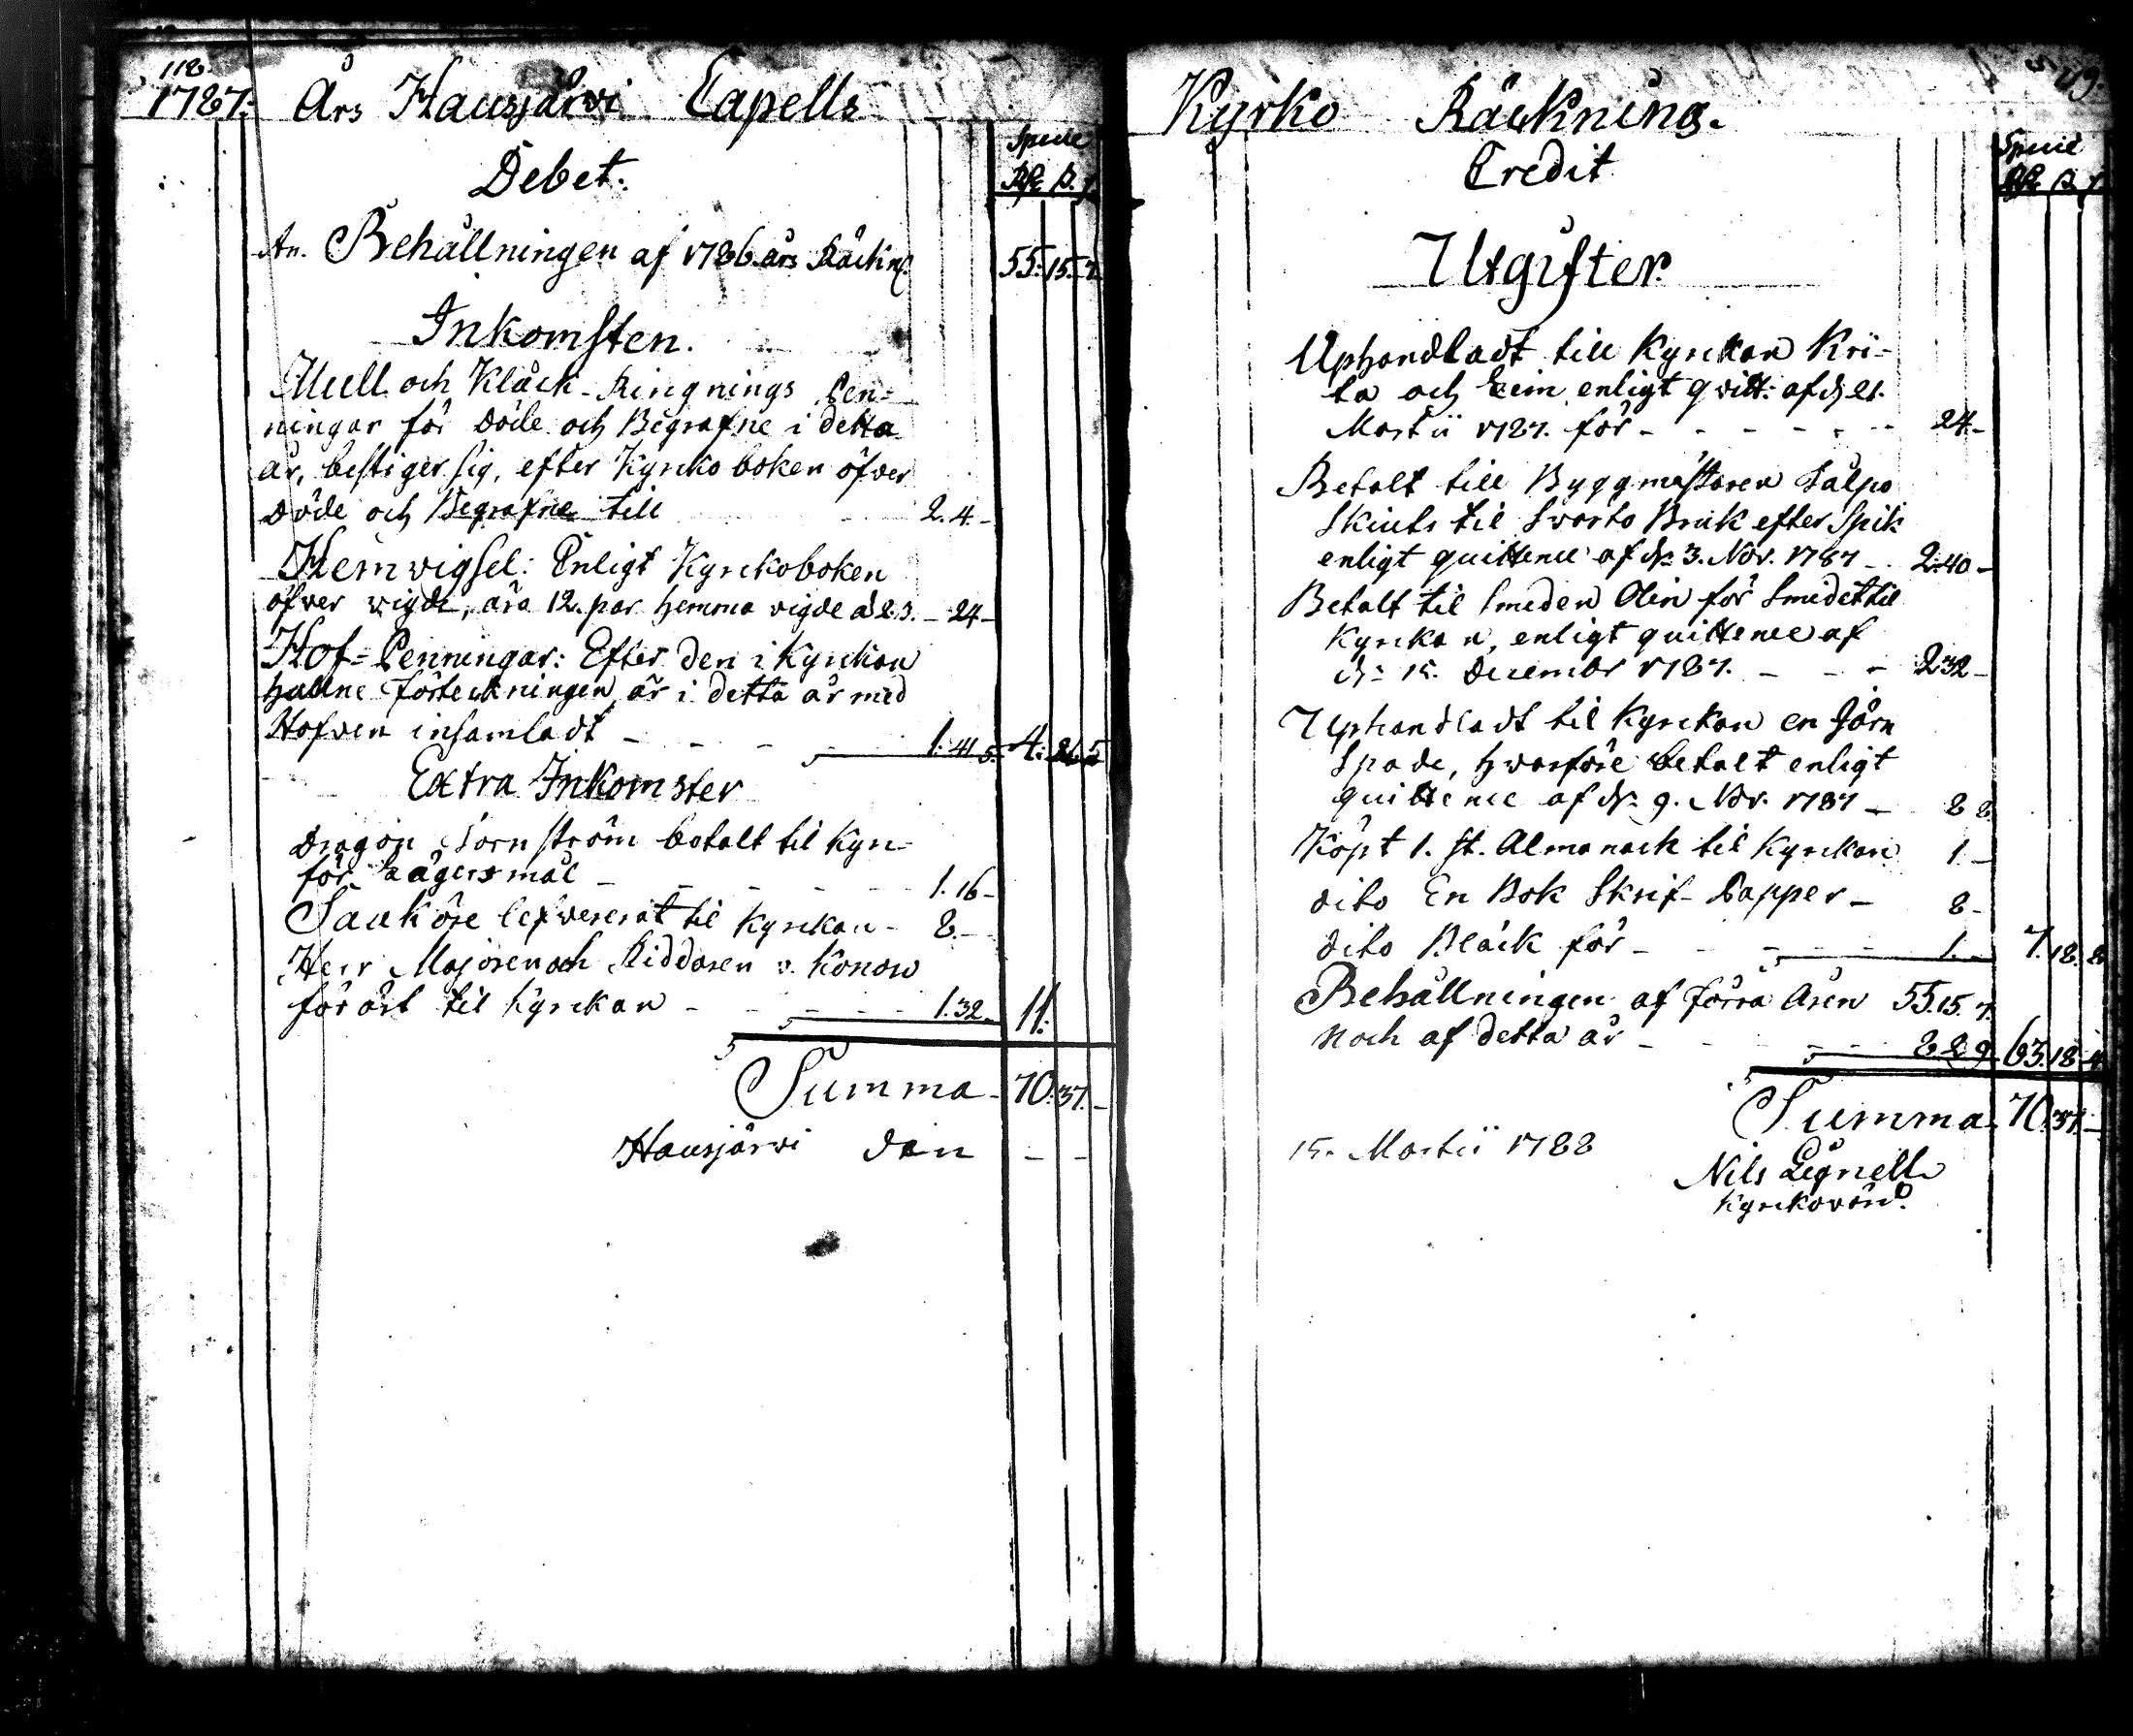 118.
1787. Års Hausjärwi Capells
Specie
Rd. s. r.
Debet.
An. Behållningen af 1786 års Räckng. 55. 15. 7.
Inkomsten.
Mull och Klåck-Ringnings Pen-
ningar för döde och Begrafne i detta
år, bestiger sig, efter Kyrko boken öfver
döde och Begrafne till 2. 4.-
Hemwigsel: Enligt Kyrckoboken
öfver wigde, ära 12. par hemma vigde a 2 s. - 24 -
Hof-Penningar: Efter den i Kyrckan
hållne förteckningen är i detta år med
Hofven insamladt - - - 1. 41. 5. 4. 21. 5
Extra Inkomster
Dragon Tornström betalt til Kyr-
för Lägersmål - - - 1. 16 -
Sauköre lefwererat til Kyrckan - 8. -
Herr Majoren och Riddaren v. Konow
för årt til Kyrckan - - - 1. 32. 11.
Summa - 70. 37. -
Hausjärwi den - -
Kyrko Räckning.
Specie
Rd. s. r.
Credit
Utgifter.
Uphandladt till Kyrckan Kri-
ta och Leim enligt qvitt: af d. 21.
Martii 1787. för - - - 24. -
Betalt till Byggmästaren Salpo
Skiuts til Svarto Bruk efter Spik
enligt quittence af d. 3. Nov. 1787 - 2. 40 -
Betalt til Smeden Olin för Smidet til
Kyrckan, enligt quittence af
d: 15. December 1787. - - - 2 32 -
Uphandladt til Kyrckan en Järn
Spade, hwarföre betalt enligt
quittence af d. 9. Nov. 1787 - 8 8
Köpt 1. st. Almanack til Kyrckan 1 -
dito En Bok Skrif-Papper - 8 -
dito Bläck för - - - 1. - 7. 18. 8
Behållningen af förra Åren 55. 15. 7.
och af detta år - - - 8 2 9 63. 18. 4.
Summa. 70. 37. -
15. Martii 1788
Nils Lignell
Kyrckovärd.